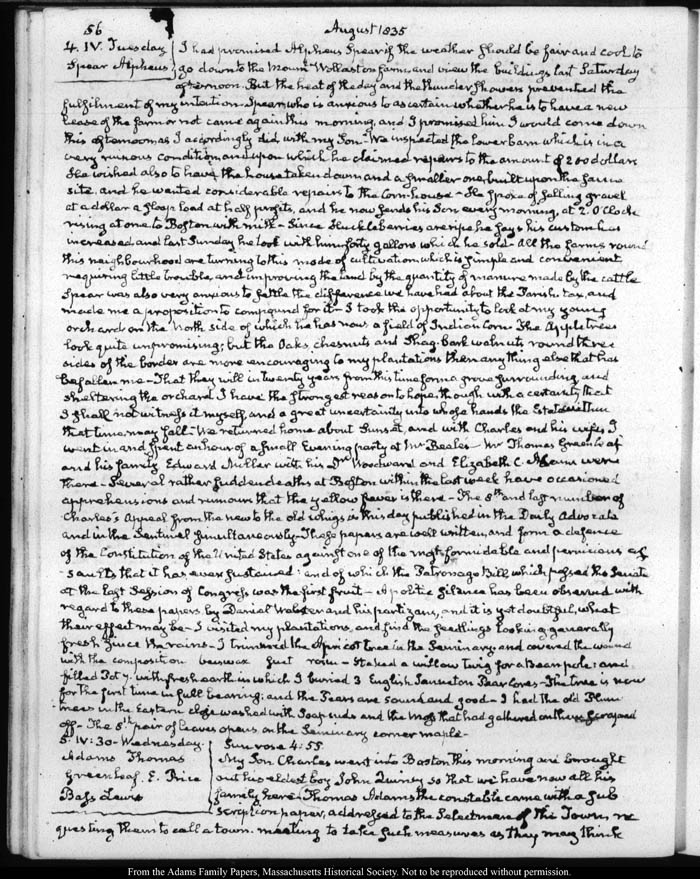 56 August 1835
4. IV. Tuesday I had promised Alpheus Spear if the weather should be fair and cool to
Spear Alpheus go down to the Mount Wollaston farm, and view the buildings last Saturday
afternoon. But the heat of the day and the thunder showers prevented the
fulfilment of my intention. Spear who is anxious to ascertain whether he is to have a new
lease of the farm or not came again this morning, and I promised him I would come down
this afternoon as I accordingly did with my Son. We inspected the lower barn which is in a
very ruinous condition, and upon which he claimed repairs to the amount of 200 dollars
He wished also to have the house taken down and a smaller one built upon the same
site, and he wanted considerable repairs to the Corn-house. He spoke of selling gravel
at a dollar a sloop load at half profits, and he now sends his Son every morning, at 2. O'Clock
rising at one to Boston with milk. Since Huckleberries are ripe he says his custom has
increased and last Sunday he took with him forty gallons which he sold. All the farms round
this neighbourhood are turning to this mode of cultivation which is simple and convenient
requiring little trouble, and improving the land by the quantity of manure made by the cattle
Spear was also very anxious to settle the difference we have had about the Parish tax, and
made me a proposition to compound for it. I took the opportunity to look at my young
orchard on the North side of which he has now a field of Indian Corn. The Apple trees
look quite unpromising; but the Oaks, chesnuts and Shag-bark walnuts round three
sides of the border are more encouraging to my plantations than any thing else that has
befallen me. That they will in twenty years from this time form a grove surrounding and
sheltering the orchard I have the strongest reason to hope, though with a certainty that
I shall not witness it myself, and a great uncertainty into whose hands the Estate within
that time may fall. We returned home about Sunset, and with Charles and his wife, I
went in and spent an hour of a small Evening party at Mr Beale's. Mr Thomas Greenleaf
and his family, Edward Miller with his Dr Woodward and Elizabeth C. Adams were
there. Several rather sudden deaths at Boston within the last week have occasioned
apprehensions and rumours that the yellow fever is there. The 8th and last number of
Charles's Appeal from the new to the old whigs is this day published in the Daily Advocate
and in the Sentinel simultaneously. These papers are well written, and form a defence
of the Constitution of the United States against one of the most formidable and pernicious as-
-saults that it has ever sustained: and of which the Patronage Bill which passed the Senate
at the last Session of Congress was the first fruit. A politic silence has been observed with
regard to these papers by Daniel Webster and his partizans, and it is yet doubtful, what
their effect may be. I visited my plantations, and find the seedlings looking generally
fresh since the rains. I trimmed the Apricot tree in the Seminary, and covered the wound
with the composition beeswax suet rosin. Staked a willow twig for a bean pole: and
filled Pot 7. with fresh earth in which I buried 3 English Pear Cores. The tree is now
for the first time in full bearing; and the Pears are sound and good. I had the old Plum
trees in the Eastern edge washed with Soap suds and the moss that had gathered on them scraped
off. The 5th pair of leaves opens on the Seminary corner maple.
5. IV:30. Wednesday. Sun rose 4:55.
Adams Thomas My Son Charles went into Boston this morning and brought
Greenleaf. E. Price out his eldest boy John Quincy so that we have now all his
Bass Lewis family here. Thomas Adams the constable came with a sub
scription paper, addressed to the Selectmen of the Town, re
questing them to call a town-meeting to take such measures as they may think
From the Adams Family Papers, Massachusetts Historical Society. Not to be reproduced without permission.